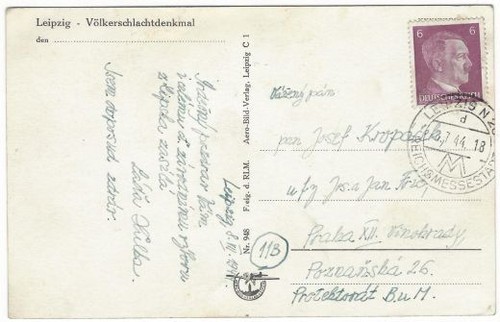 Leipzig - Völkerschlachtdenkmal
den
Srdečný pozdrav Vám
i celému
zasílá
Láďa
Jsem doposud zdráv.
Leipzig, 8. VII.
Nr. 948 Freig. d. RLM. Aero-Bild-Verlag, Leipzig C 1
113
6 6
DEUTSCHES REICH
LEIPZIG N
d
7.44.18
M
REICHSMESSESTA
Vážený pán
pan Josef Kropáček
u fy Jos. a Jan
Praha XII. Vinohrady
Poznaňská 26.
Protektorát B. u M.